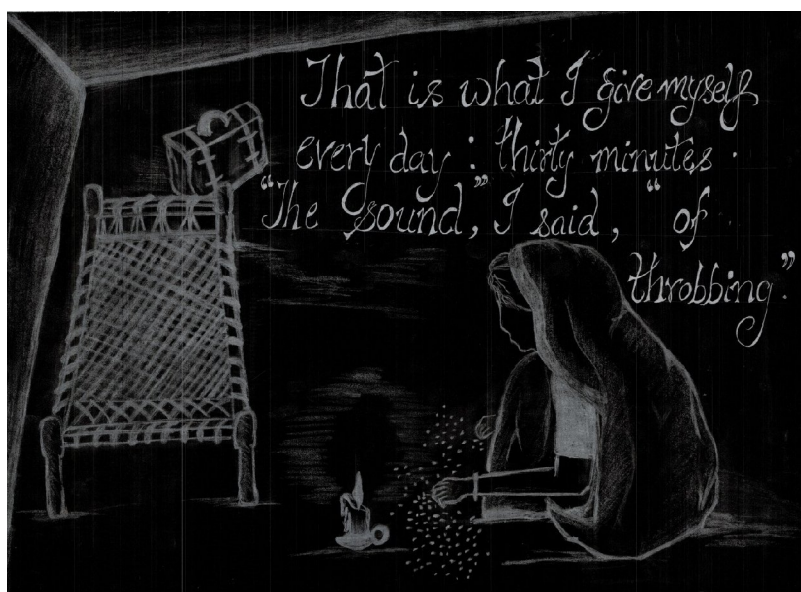 That is what I give myself
every day : thirty minutes .
“The Sound,” I said, “of
throbbing.”